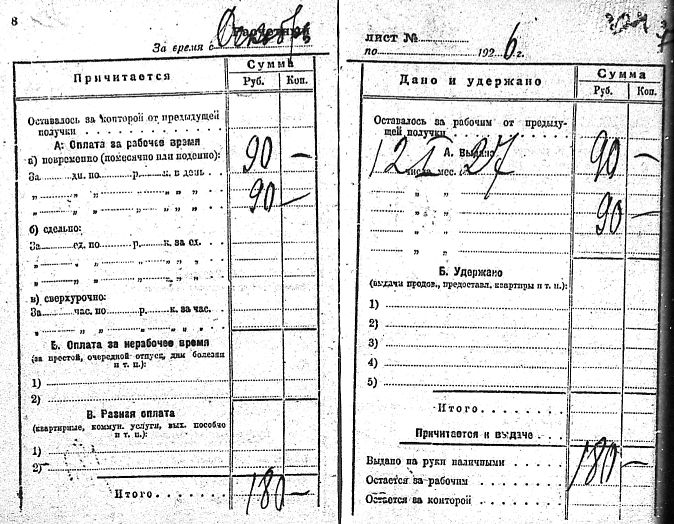 8
Расчетный
За время с Октябрь
Причитается
Сумма
Руб. Коп.
Оставалось за конторой от предыдущей
получки
А: Оплата за рабочее время
а) повременно (помесячно или поденно): 90 —
За ...... дн. по ...... р. ...... к. в день
„ „ „ „ „ „ 90 —
„ „ „ „ „ „
б) сдельно:
За ...... ед. по ...... р. ...... к. за ед.
„ „ „ „ „ „
„ „ „ „ „ „
в) сверхурочно:
За ...... час. по ...... р. ...... к. за час.
„ „ „ „ „ „
Б. Оплата за нерабочее время
(за простой, очередной отпуск, дни болезни
и т. п.):
1)
2)
В. Разная оплата
(квартирные, коммун. услуги, вых. пособие
и т. п.):
1)
2)
Итого 180 —
лист №
по ...... 1926 г.
Дано и удержано
Сумма
Руб. Коп.
Оставалось за рабочим от предыду-
щей получки
А. Выдано 90 —
числа мес.
„ „
„ „ 90 —
„ „
Б. Удержано
(выдачи продов., предоставл. квартиры и т. п.):
1)
2)
3)
4)
5)
Итого
Причитается к выдаче
Выдано на руки наличными 180 —
Остается за рабочим
Остается за конторой